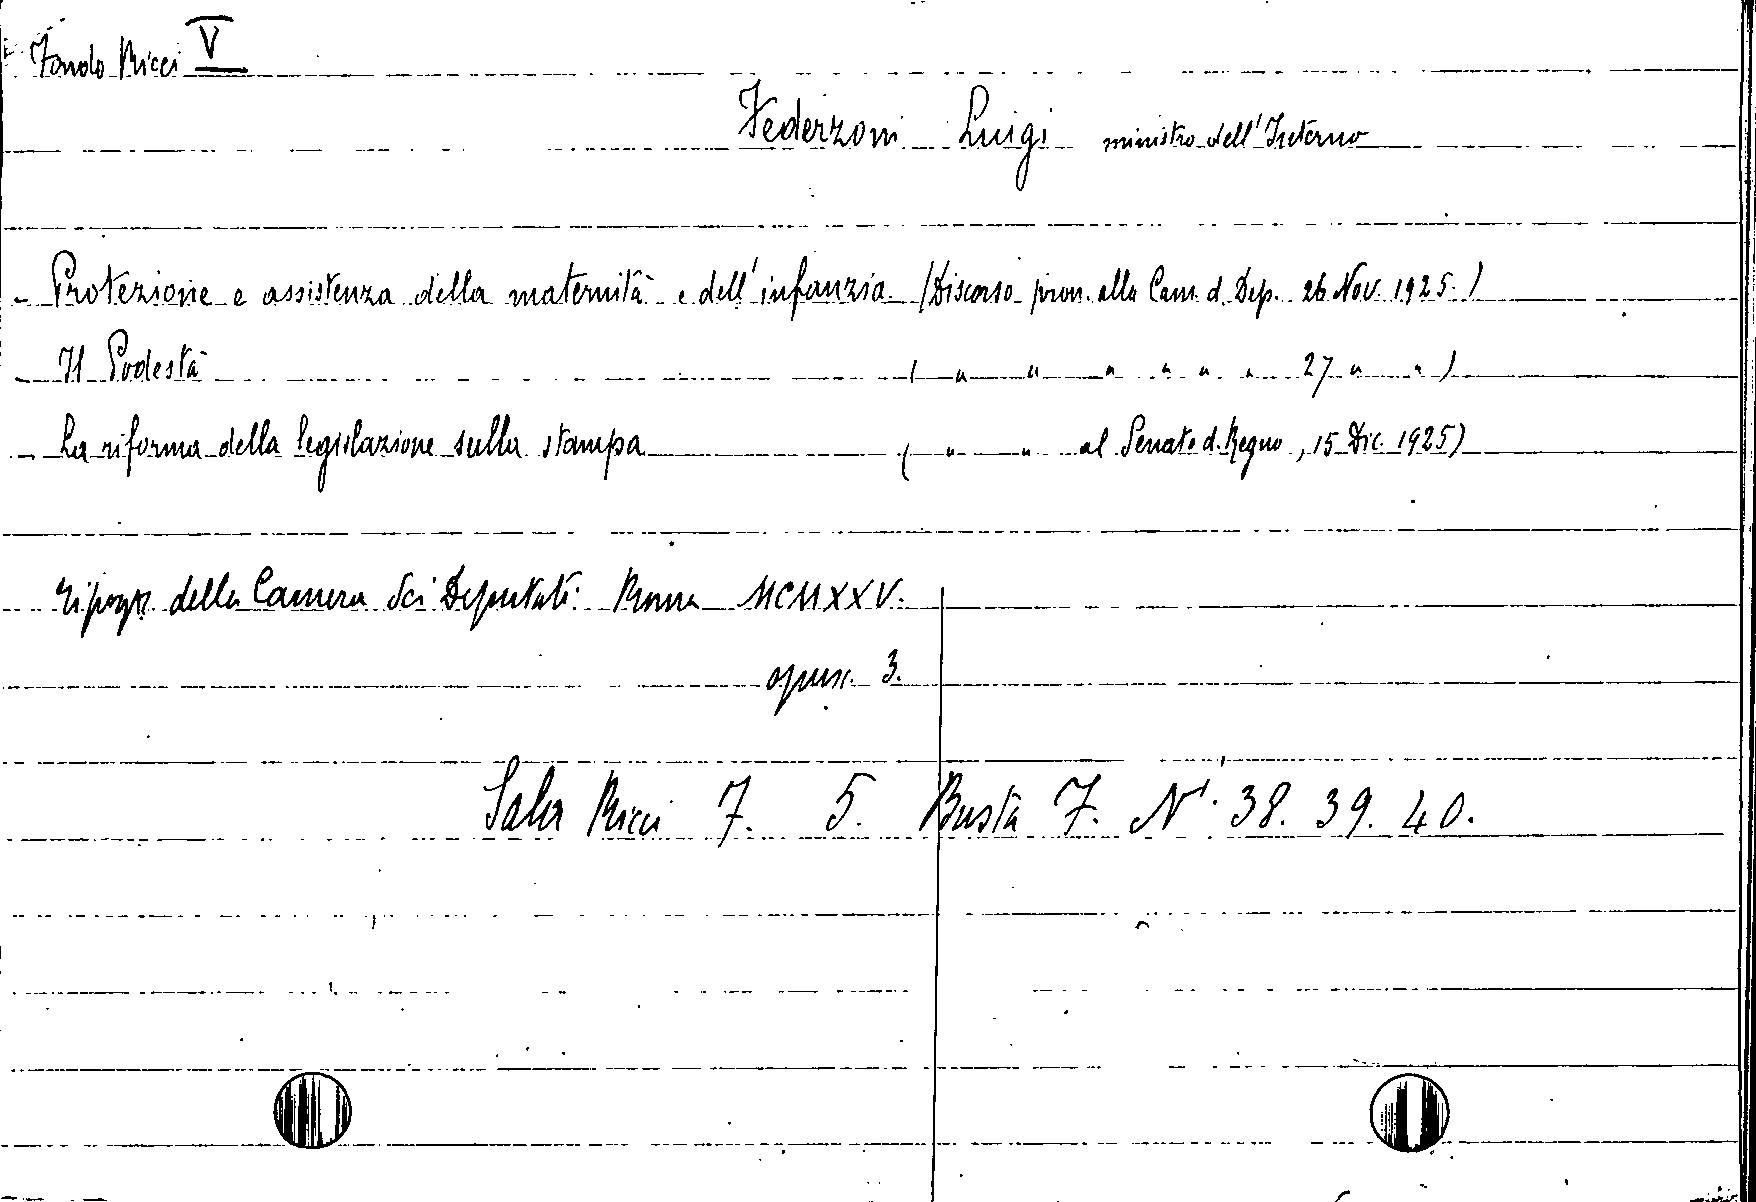 Fondo Ricci V
Federzoni Luigi ministro dell'Interno
- Protezione e assistenza della maternità e dell'infanzia (Discorso pron. alla Cam. d. Dep. 26 Nov. 1925.)
- Il Podestà ( " " " " " " 27 " " )
- La riforma della legislazione sulla stampa ( " " al Senato d. Regno, 15 Dic. 1925)
Tipogr. della Camera dei Deputati. Roma MCMXXV.
opusc. 3.
Sala Ricci 7. 5. Busta 7. N.i 38. 39. 40.